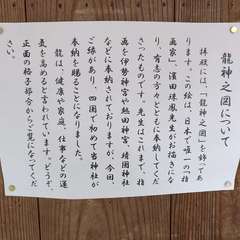 龍神之図について
拝殿には、「龍神之図」を飾ってあ
ります。この絵は、日本で唯一の「指
画家」、濱田珠鳳先生がお描きにな
り、有志の方々とともに奉納してくだ
さったものです。先生はこれまで、指
画を伊勢神宮や熱田神宮、靖国神社
などに奉納されておりますが、今回
ご縁があり、四国で初めて当神社が
奉納を賜ることになりました。
龍は、健康や家庭、仕事などの運
気を高めると言われています。どうぞ、
正面の格子部分からご覧になってくだ
さい。